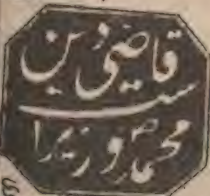 قاضی دین
ست
محمد وزیرا